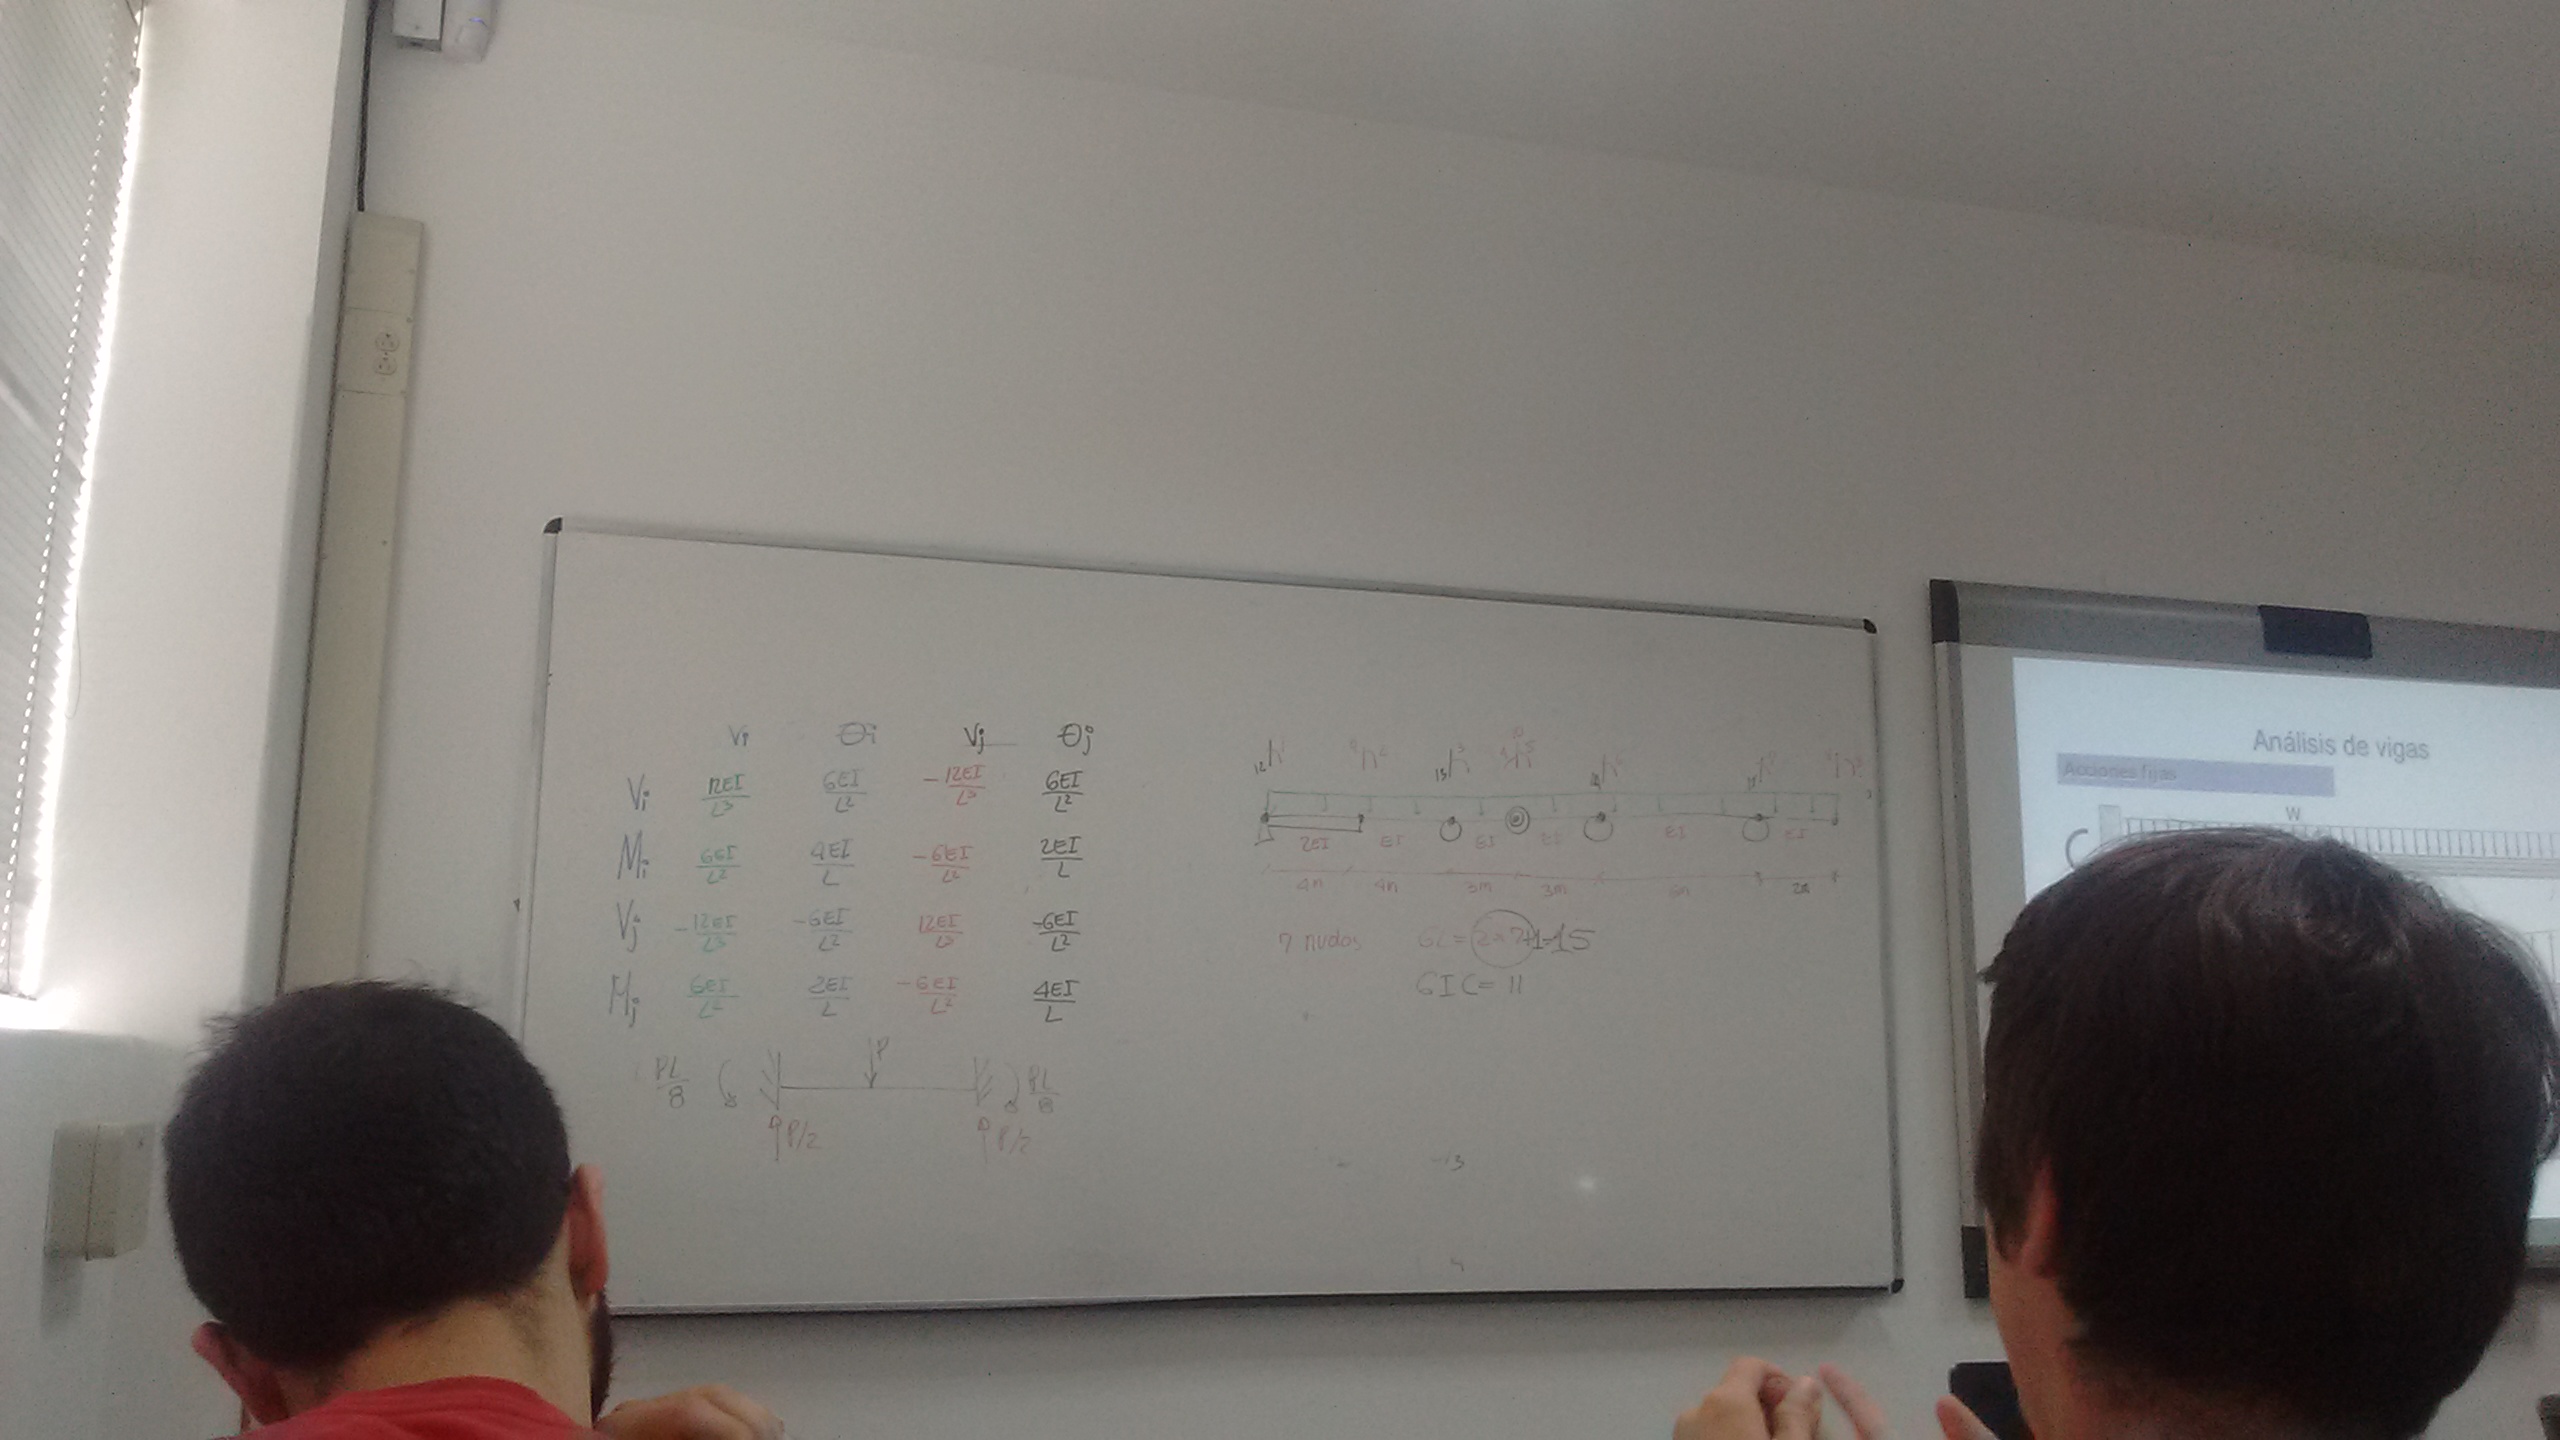 Vi θi Vj θj
Vi 12EI/L³ 6EI/L² -12EI/L³ 6EI/L²
Mi 6EI/L² 4EI/L -6EI/L² 2EI/L
Vj -12EI/L³ -6EI/L² 12EI/L³ -6EI/L²
Mj 6EI/L² 2EI/L -6EI/L² 4EI/L
PL/8 P PL/8
P/2 P/2
12 13
2EI EI EI EI EI EI
4m 4m 3m 3m 6m 2m
7 nudos GL=2x7+1=15
GIC= 11
Análisis de vigas
Acciones fijas
W